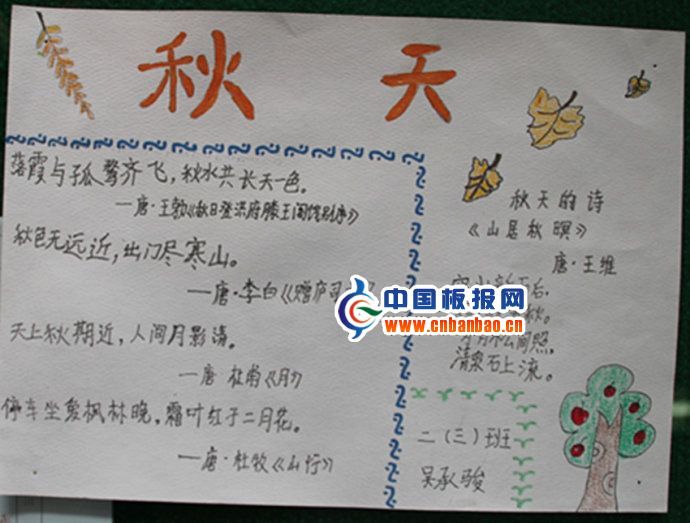 秋 天
落霞与孤鹜齐飞，秋水共长天一色。
—唐·王勃《秋日登洪府滕王阁饯别序》
秋色无远近，出门尽寒山。
—唐·李白《赠庐司
天上秋期近，人间月影清。
—唐 杜甫《月》
停车坐爱枫林晚，霜叶红于二月花。
—唐·杜牧《山行》
秋天的诗
《山居秋暝》
唐·王维
空山新雨后，
秋。
松间照，
清泉石上流。
二（三）班
吴承骏
中国板报网
www.cnbanbao.cn